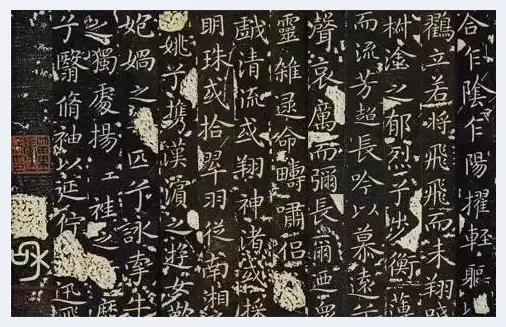 合乍陰乍陽擢輕軀
鶴立若將飛飛而未翔踐
椒塗之郁烈兮步衡薄
而流芳超長吟以慕遠兮
聲哀厲而彌長爾迺眾
靈雜遝命疇嘯侶
戲清流或翔神渚或採
明珠或拾翠羽從南湘
妃兮攜漢濱之遊女歎
媧之匹兮詠牽牛
之獨處揚袿之靡
兮翳脩袖以延佇迅飛
永